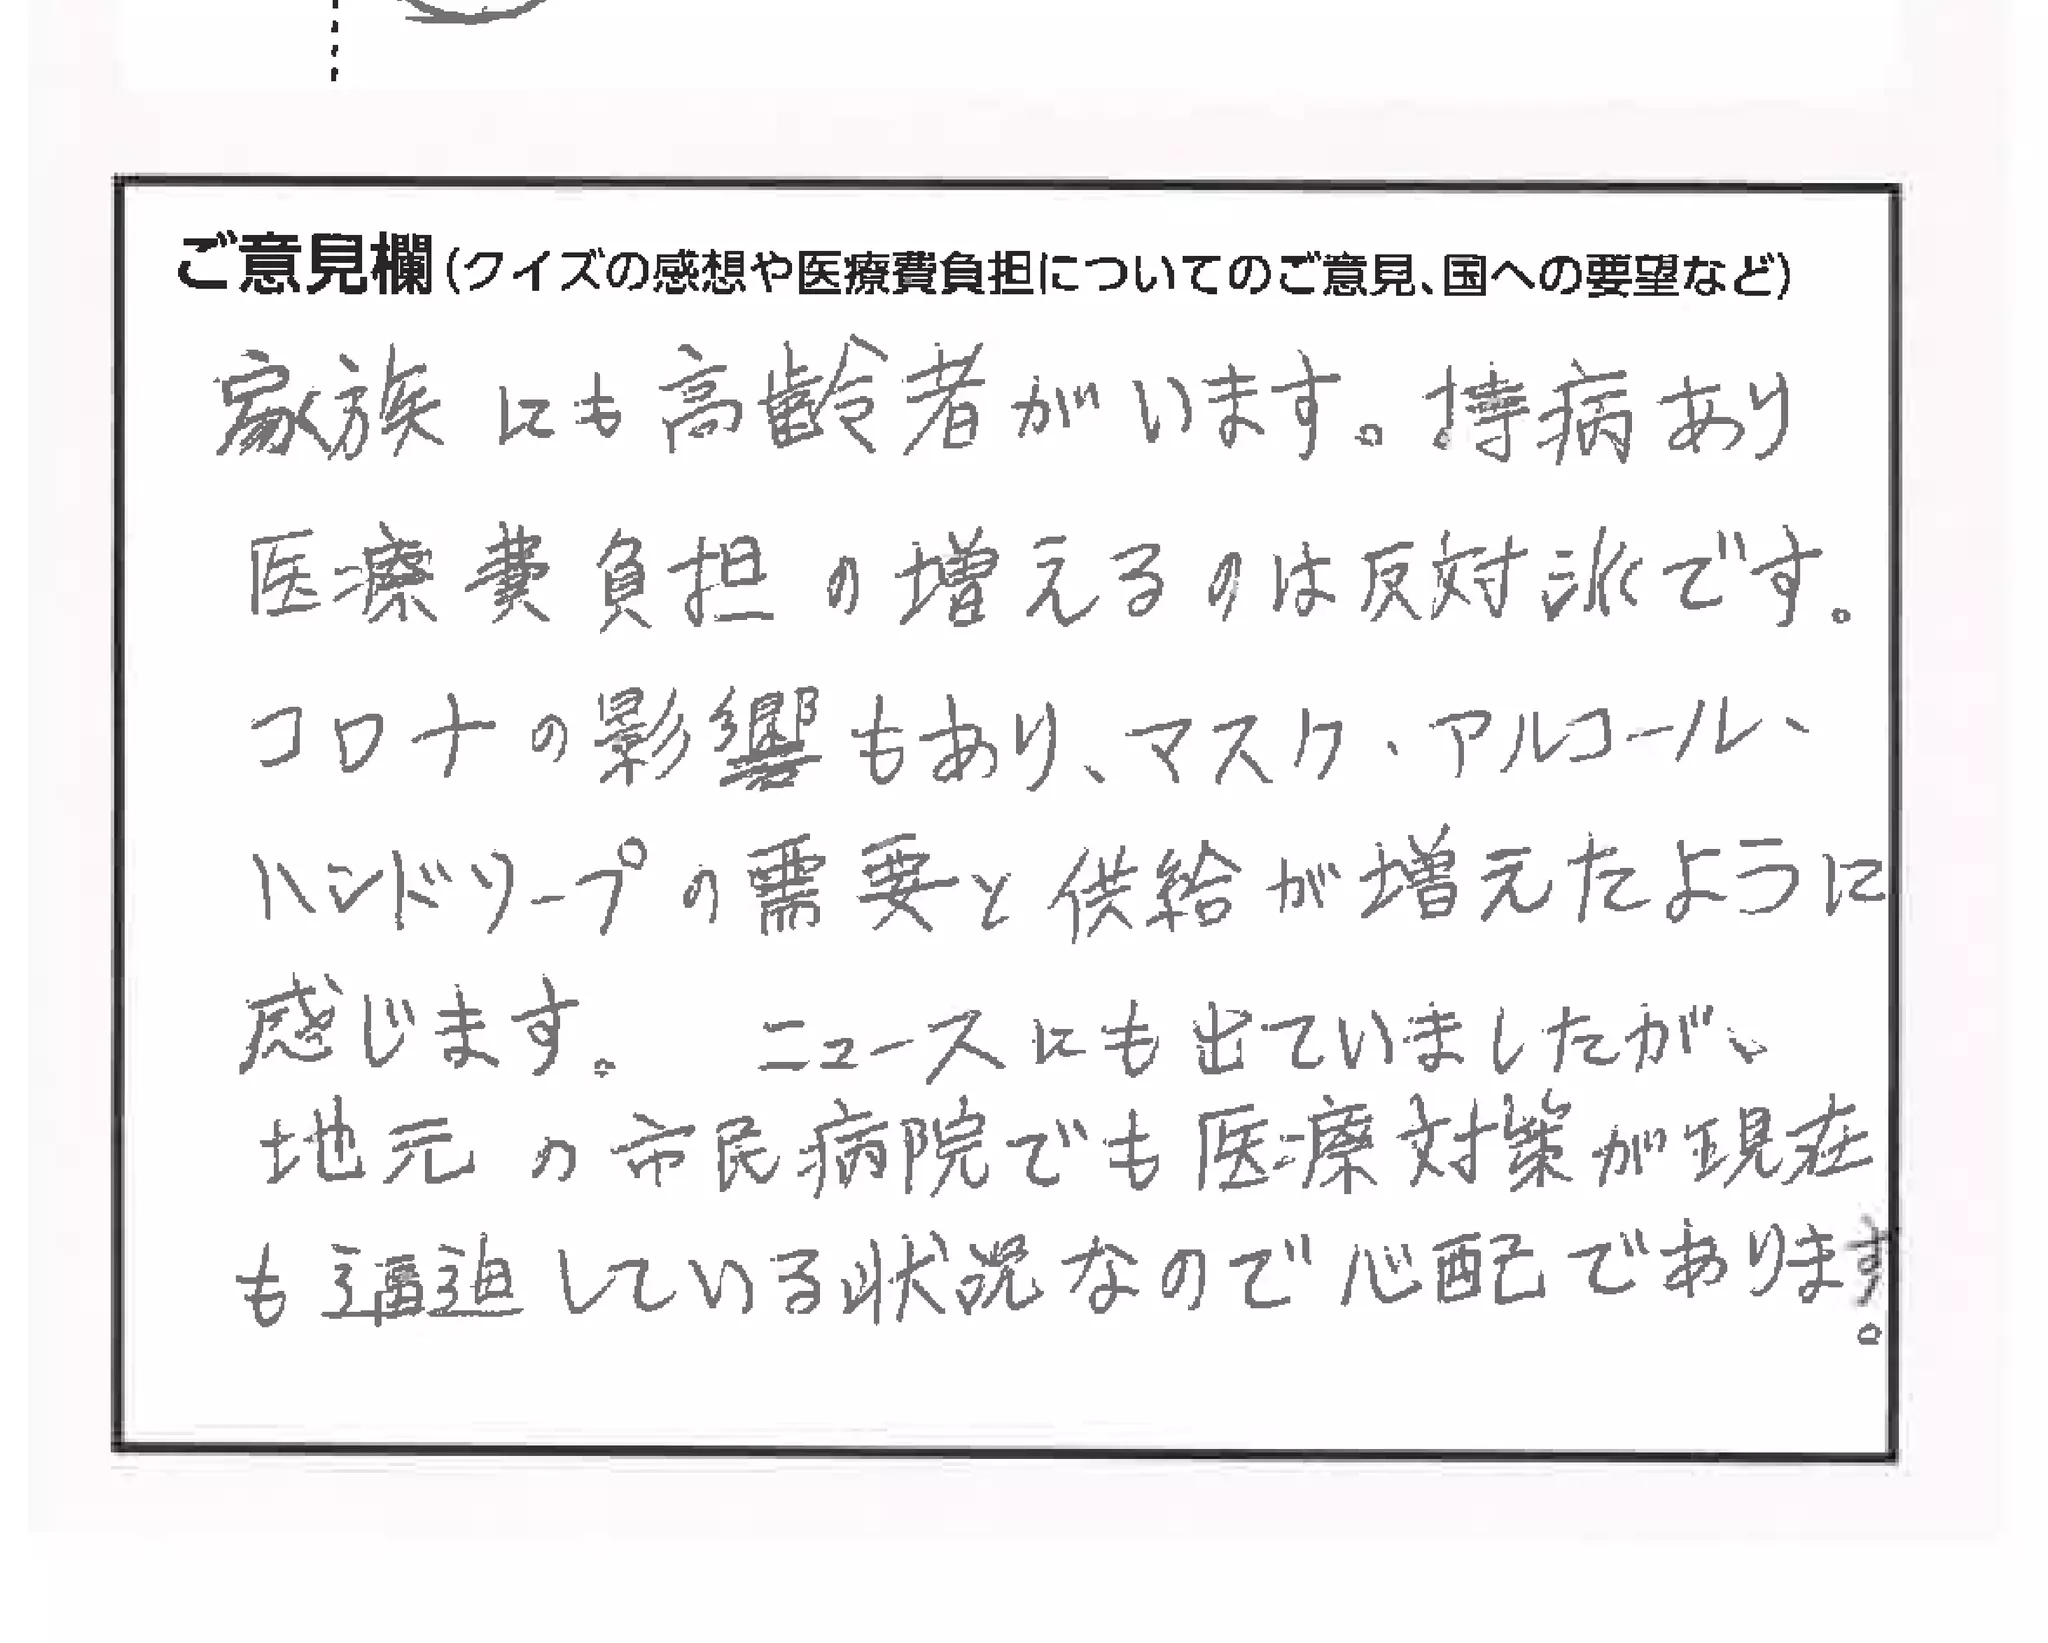 ご意見欄(クイズの感想や医療費負担についてのご意見、国への要望など)
家族にも高齢者がいます。持病あり
医療費負担の増えるのは反対派です。
コロナの影響もあり、マスク、アルコール、
ハンドソープの需要と供給が増えたように
感じます。 ニュースにも出ていましたが、
地元の市民病院でも医療対策が現在
も逼迫している状況なので心配であります。